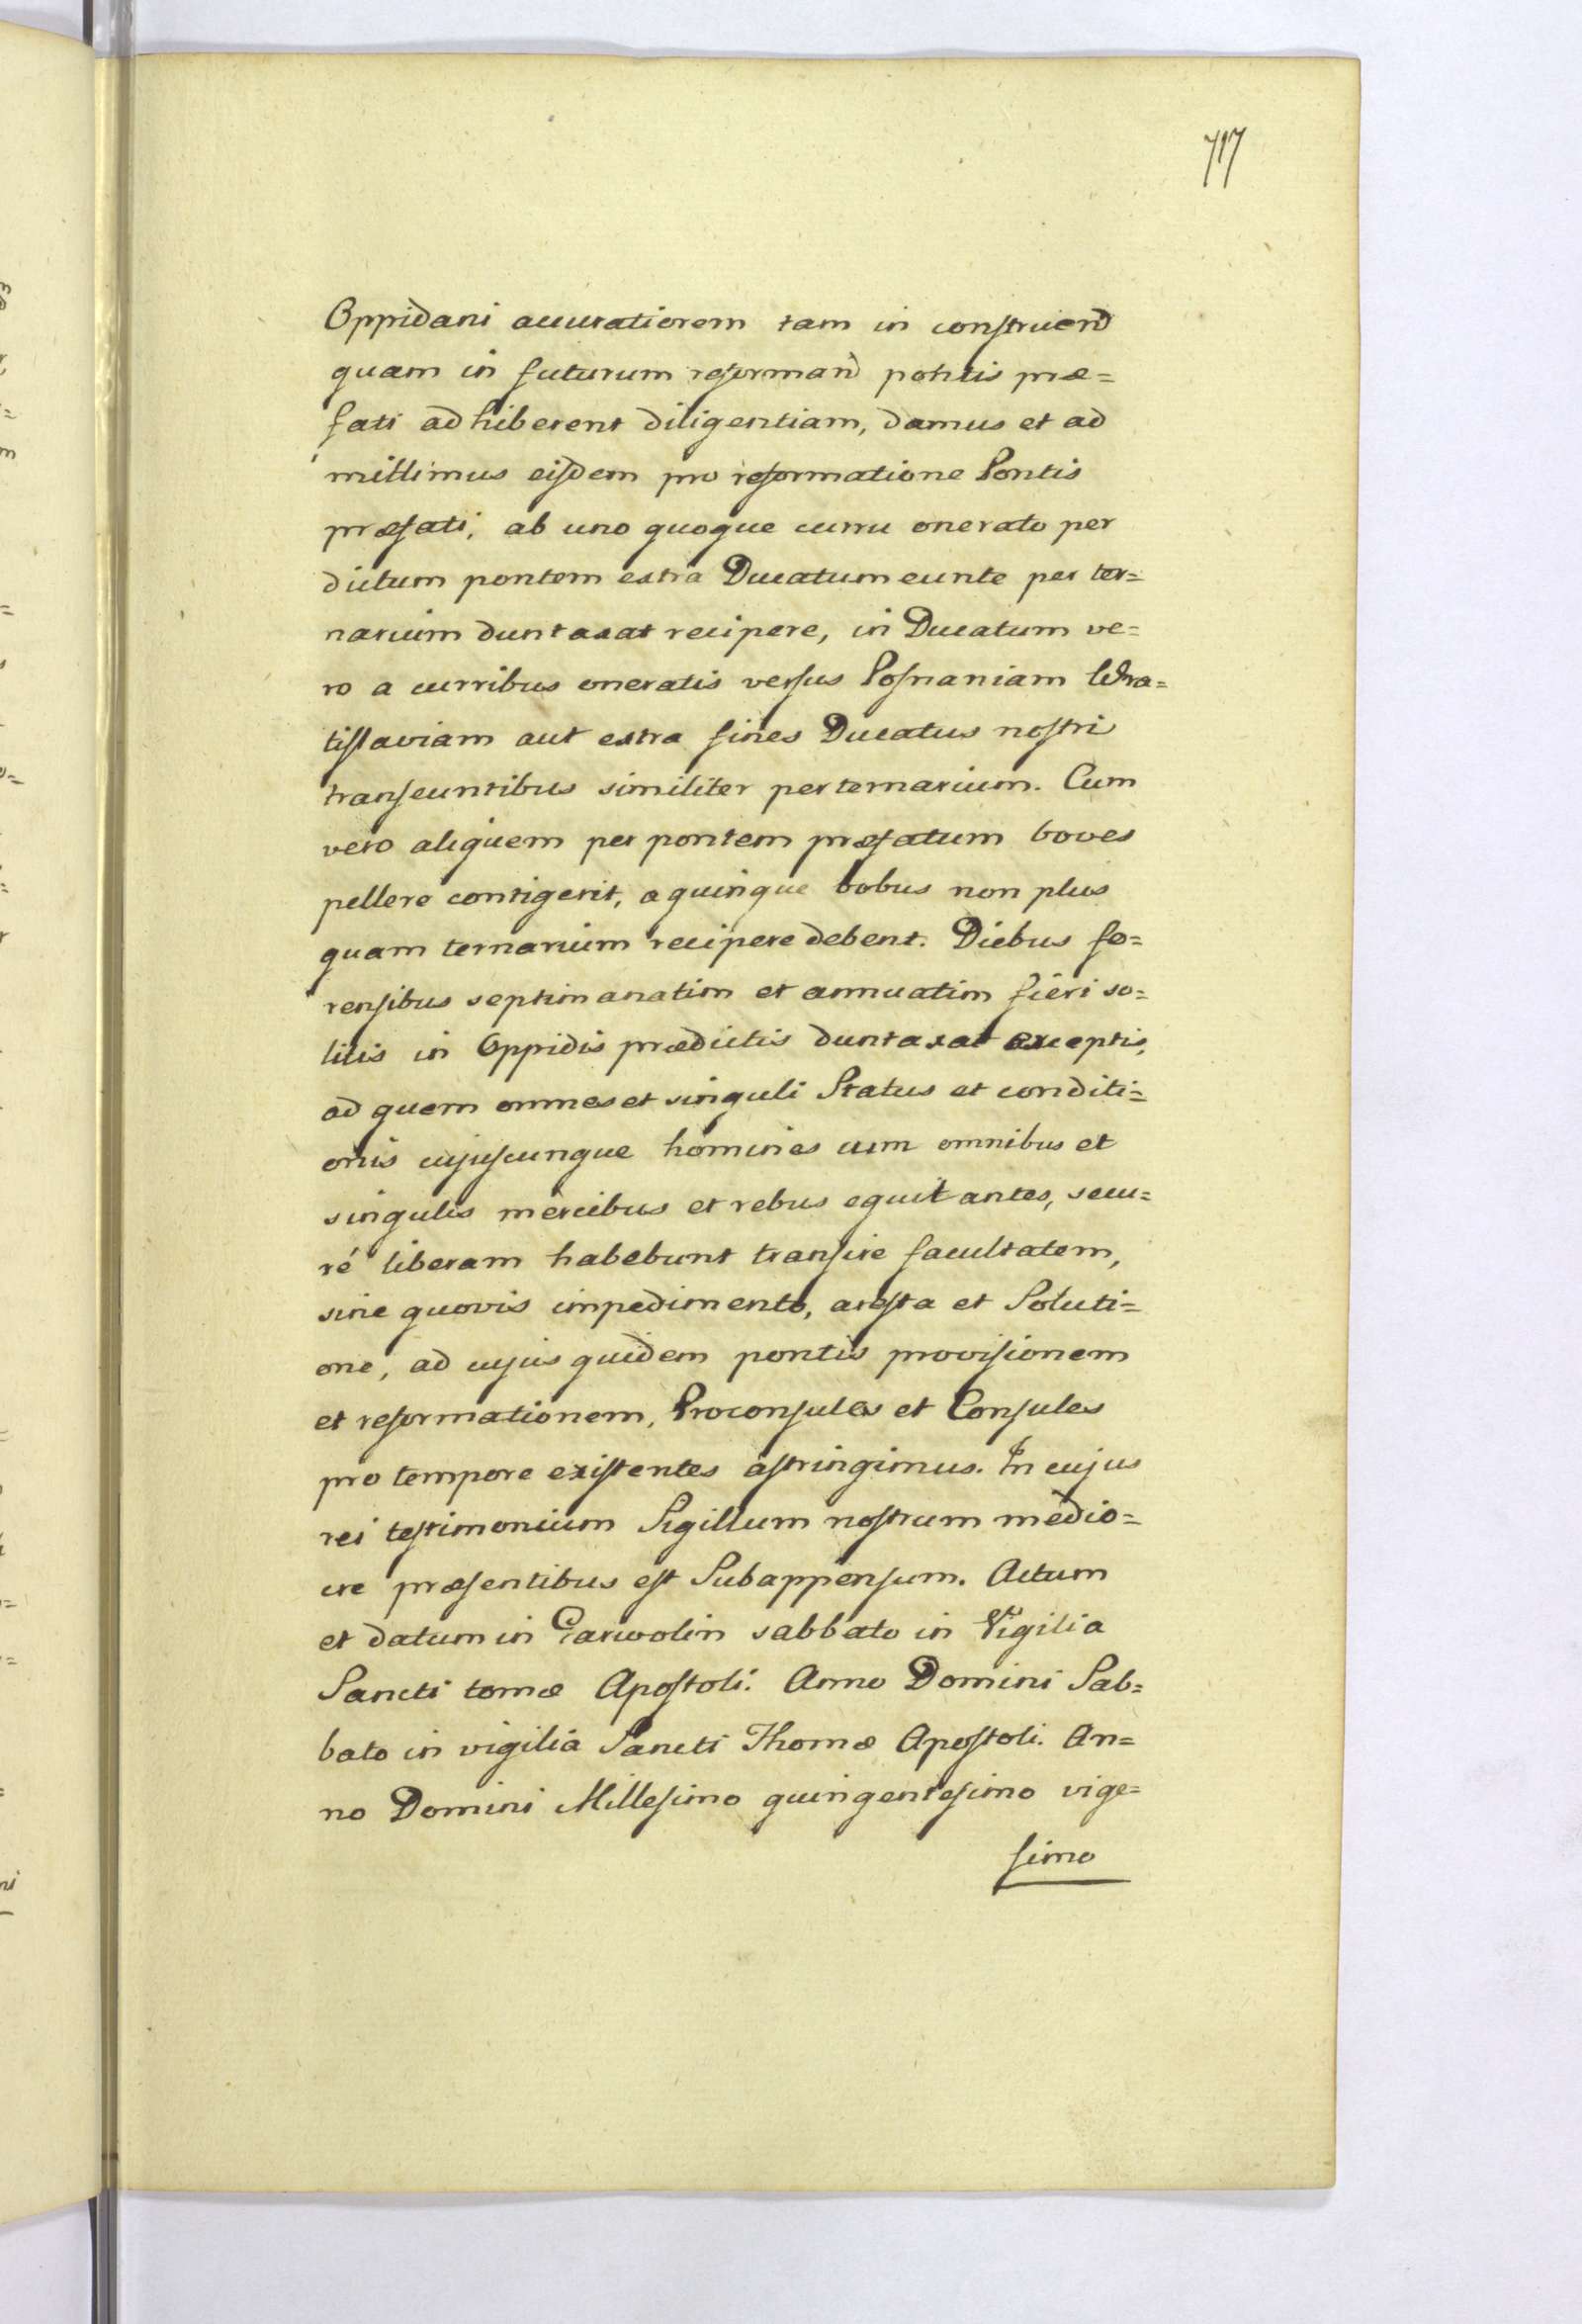 717
Oppidani accuratiorem tam in construend
quam in futurum reformand pontis præ=
fati adhiberent diligentiam, damus et ad
mittimus eisdem pro reformatione Pontis
præfati, ab uno quoque curru onerato per
dictum pontem extra Ducatum eunte per ter=
narium duntaxat recipere, in Ducatum ve=
ro a curribus oneratis versus Posnaniam Wra=
tislaviam aut extra fines Ducatus nostri
transeuntibus similiter per ternarium. Cum
vero aliquem per pontem præfatum boves
pellere contigerit, a quinque bobus non plus
quam ternarium recipere debent. Diebus fo=
rensibus septimanatim et annuatim fieri so=
litis in Oppidis prædictis duntaxat exceptis,
ad quem omnes et singuli Status et conditi=
onis cujuscunque homines cum omnibus et
singulis mercibus et rebus equitantes, secu=
ré liberam habebunt transire facultatem,
sine quovis impedimento, aresta et Soluti=
one, ad cujus quidem pontis provisionem
et reformationem, Proconsules et Consules
pro tempore existentes astringimus. In cujus
rei testimonium Sigillum nostrum medio=
cre præsentibus est Subappensum. Actum
et datum in Garwolin sabbato in Vigilia
Sancti tomæ Apostoli. Anno Domini Sab=
bato in vigilia Sancti Thomæ Apostoli. An=
no Domini Millesimo quingentesimo vige=
simo